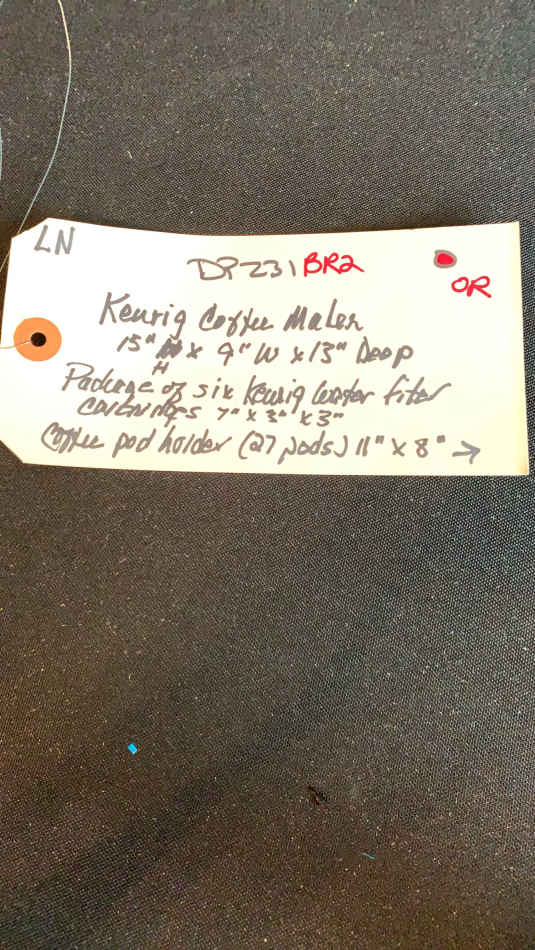 LN
DPZ31 BR2
OR
Keurig Coffee Maker
15" H x 9" W x 13" Deep
Package of six Keurig water filter
cartridges 7" x 3" x 3"
Coffee pod holder (27 pods) 11" x 8" →